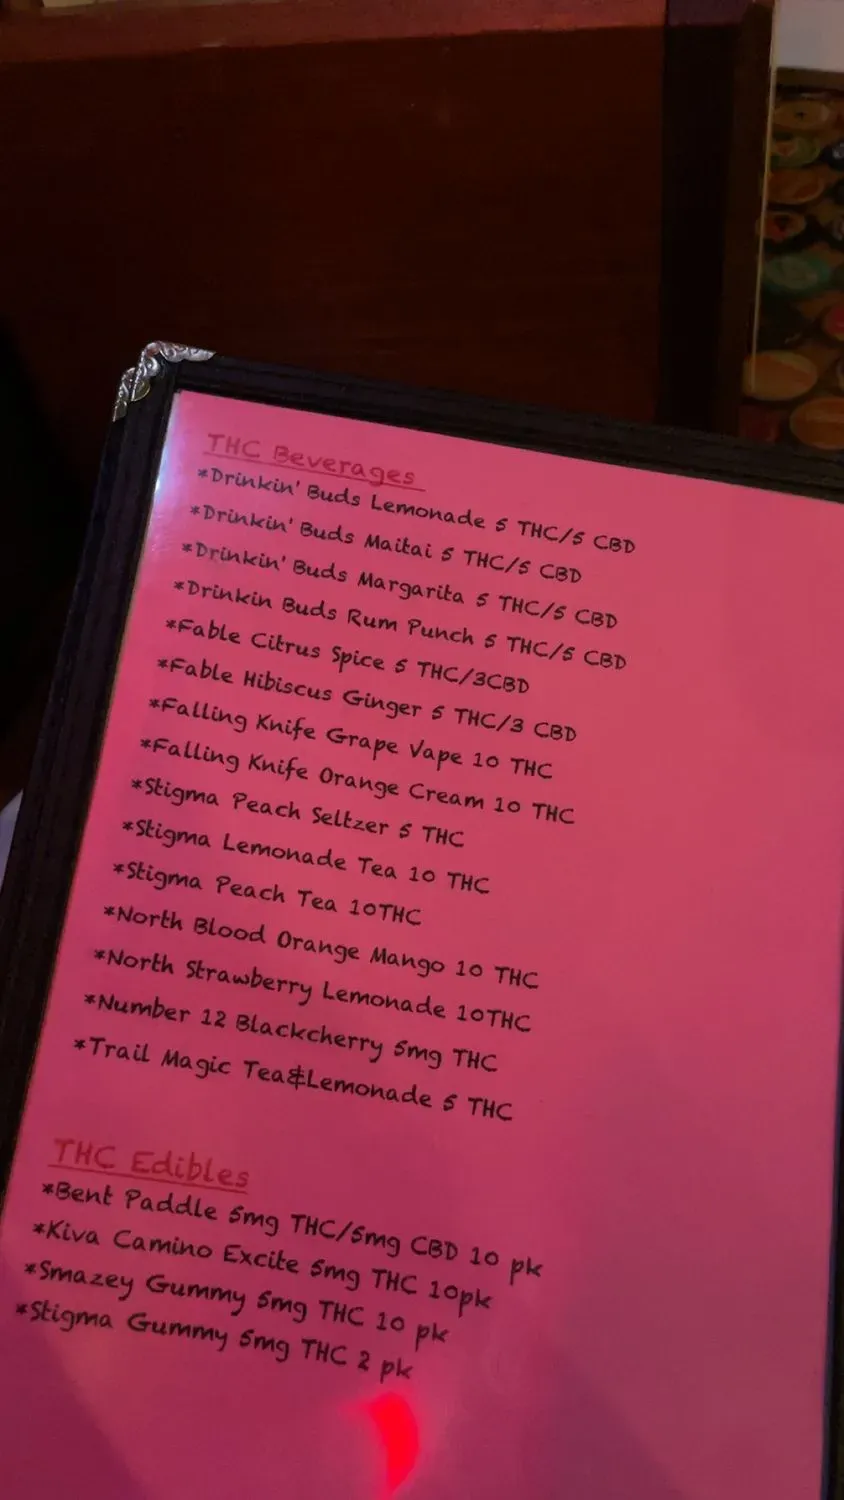 THC Beverages
*Drinkin' Buds Lemonade 5 THC/5 CBD
*Drinkin' Buds Maitai 5 THC/5 CBD
*Drinkin' Buds Margarita 5 THC/5 CBD
*Drinkin Buds Rum Punch 5 THC/5 CBD
*Fable Citrus Spice 5 THC/3CBD
*Fable Hibiscus Ginger 5 THC/3 CBD
*Falling Knife Grape Vape 10 THC
*Falling Knife Orange Cream 10 THC
*Stigma Peach Seltzer 5 THC
*Stigma Lemonade Tea 10 THC
*Stigma Peach Tea 10THC
*North Blood Orange Mango 10 THC
*North Strawberry Lemonade 10THC
*Number 12 Blackcherry 5mg THC
*Trail Magic Tea&Lemonade 5 THC
THC Edibles
*Bent Paddle 5mg THC/5mg CBD 10 pk
*Kiva Camino Excite 5mg THC 10pk
*Smazey Gummy 5mg THC 10 pk
*Stigma Gummy 5mg THC 2 pk